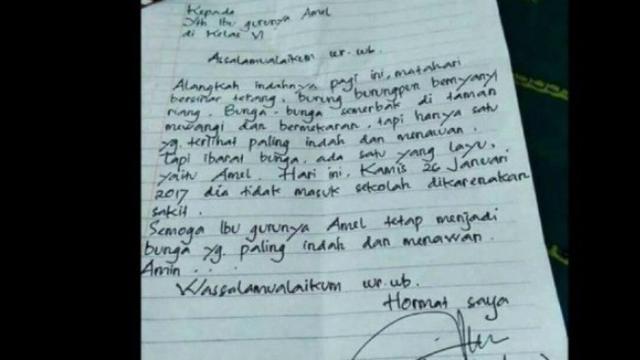 Kepada
Yth Ibu gurunya Amel
di Kelas VI
Assalamualaikum wr.wb.
Alangkah indahnya pagi ini, matahari
bersinar terang, burung burungpun bernyanyi
riang. Bunga-bunga semerbak di taman
mewangi dan bermekaran, tapi hanya satu
yg. terlihat paling indah dan menawan.
Tapi ibarat bunga, ada satu yang layu,
yaitu Amel. Hari ini, Kamis 26 Januari
2017 dia tidak masuk sekolah dikarenakan
sakit.
Semoga Ibu gurunya Amel tetap menjadi
bunga yg. paling indah dan menawan.
Amin . . .
Wassalamualaikum wr.wb.
Hormat saya